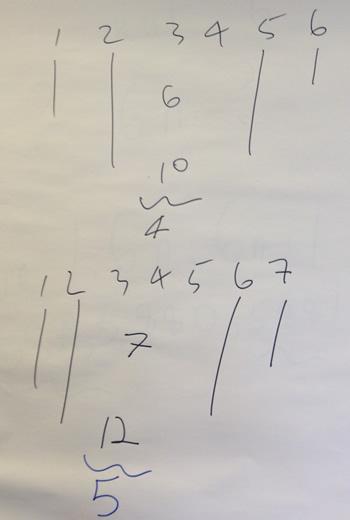 1 2 3 4 5 6
6
10
4
1 2 3 4 5 6 7
7
12
5